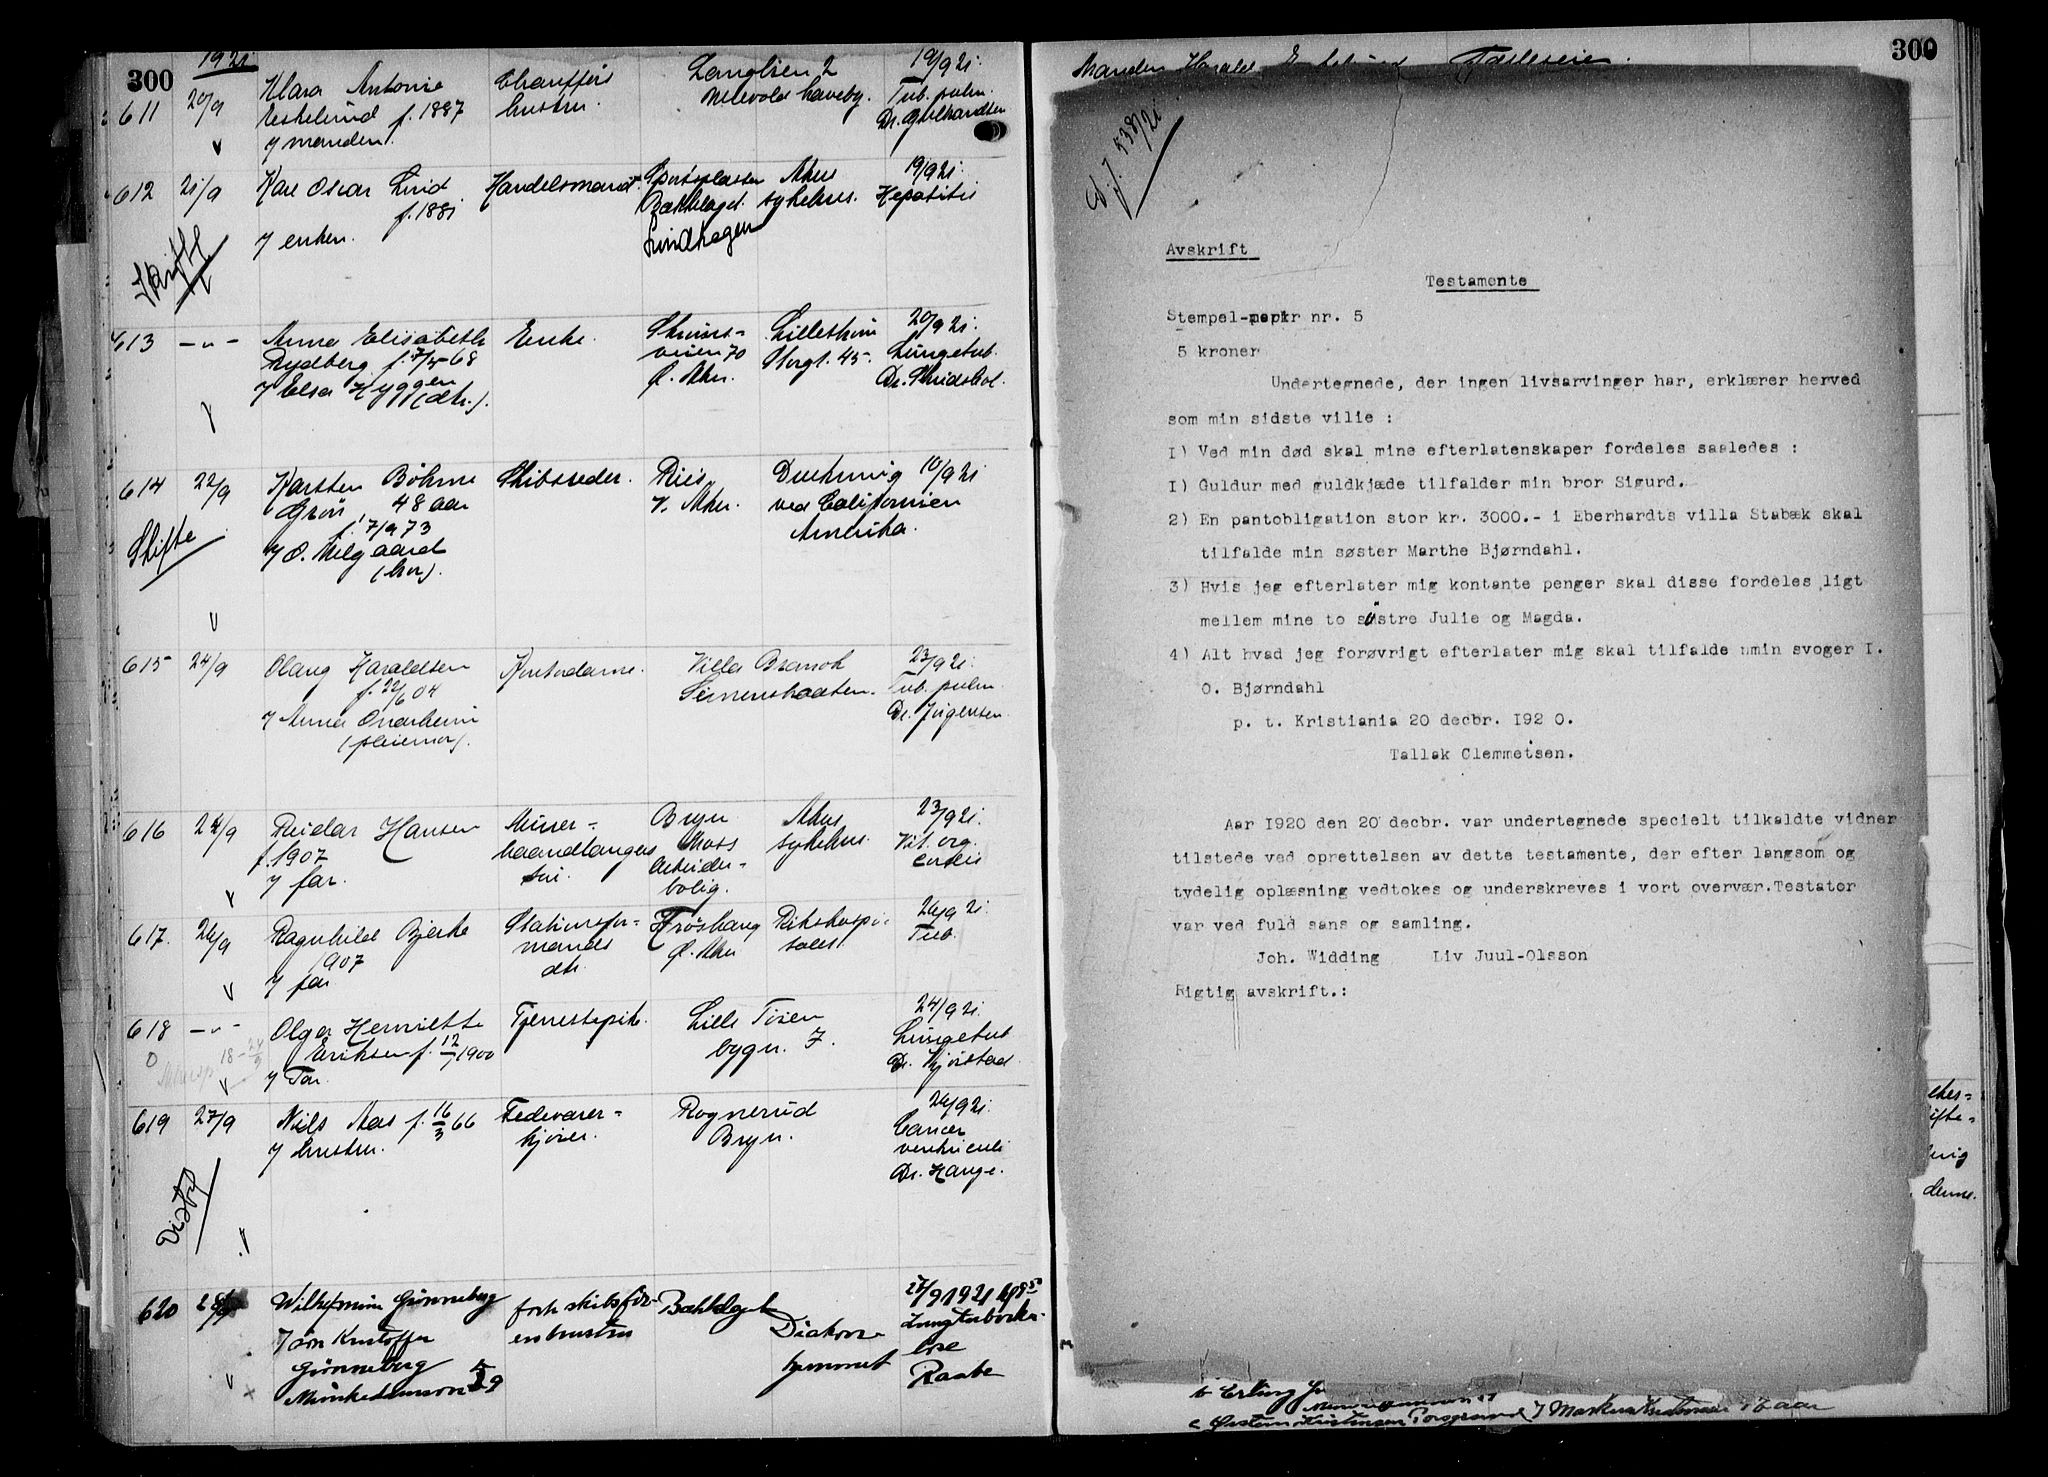 300
1921
611 20/9 Klara Antonie Eskelund f. 1887
7 manden.
Chaufførs hustru.
Langlien 2
Ullevold haveby.
19/9 21.
Tub. pulm.
612 21/9 Karl Oscar Lind
f. 1881
7 enken.
Handelsmand.
Bækkelaget.
Lindhagen
Akers sykehus.
19/9 21.
Hepatitis
Skifte
613 -"- Anna Elisabeth
Rydberg
7 Elsa Hyggen (dtr.).
Enke.
Strømsveien 70
Ø. Aker.
Lillestrøm
Storgt. 45.
20/9 21.
Lungetub.
614 22/9 Karsten Böhme
Grøn, 48 aar
f. 17/9 73
(bror).
Skibsreder.
Riis,
V. Aker.
Drukning
ved Californien
Amerika.
10/9 21
Skifte
615 24/9 Olaug Haraldsen
f. 22/6 04
7 Anna
(pleiemor).
Kontordame.
Villa
23/9 21.
Tub. pulm.
Dr. Jürgensen.
616 24/9 Reidar Hansen
f. 1907
7 far.
Murerhaandlangers søn.
Bryn
Moss
Arbeiderbolig.
Akers sykehus.
23/9 21.
Vit. org. cordis
617. 26/9 Ragnhild Bjerke
1907
7 far
Stationsformands dtr.
Ø. Aker
Rikshospitalet.
26/9 21.
Tub.
618 -"- Olga Henriette
Eriksen f. 12/7 1900
7 Far.
Tjenestepike.
Lille Tøien
bygn. 7.
24/9 21.
Lungetub
619 27/9 Nils Aas f. 16/3 66
7 hustru.
Fedevarerkjører.
Rognerud
Bryn.
26/9 21.
Cancer
ventriculi
Dr. Hauge.
620 Wilhelmine Grønneberg
7 søn Kristoffer
Grønneberg
Munkedamsvn
forh skibsførerhustru
Bækkelaget
Diakonhjemmet
27/9 1921
Raabe
300
Manden Harald
538/21
Avskrift
Testamente
Stempel-papir nr. 5
5 kroner
Undertegnede, der ingen livsarvinger har, erklærer herved
som min sidste vilie :
I) Ved min død skal mine efterlatenskaper fordeles saaledes :
I) Guldur med guldkjæde tilfalder min bror Sigurd.
2) En pantobligation stor kr. 3000.- i Eberhardts villa Stabæk skal
tilfalde min søster Marthe Bjørndahl.
3) Hvis jeg efterlater mig kontante penger skal disse fordeles ligt
mellem mine to søstre Julie og Magda.
4) Alt hvad jeg forøvrigt efterlater mig skal tilfalde min svoger I.
O. Bjørndahl
p. t. Kristiania 20 decbr. 192 0.
Tallak Clemmetsen.
Aar I920 den 20 decbr. var undertegnede specielt tilkaldte vidner
tilstede ved oprettelsen av dette testamente, der efter langsom og
tydelig oplæsning vedtokes og underskreves i vort overvær.Testator
var ved fuld sans og samling.
Joh. Widding Liv Juul-Olsson
Rigtig avskrift.:
denne.
b Erling